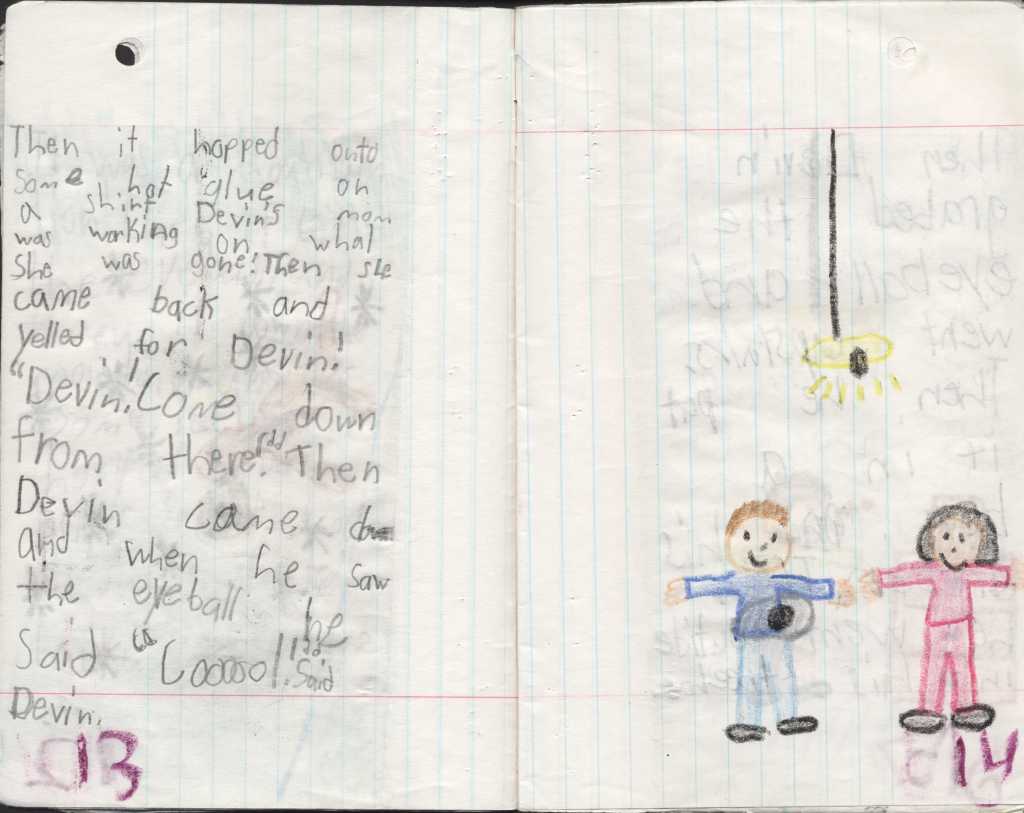 Then it hopped onto
some hot glue on
a shirt Devin's mom
was working on what
she was gone! Then she
came back and
yelled for Devin!
"Devin! Come down
from there!" Then
Devin came down
and when he saw
the eyeball he
Said "Cooool!" Said
Devin.
13
14